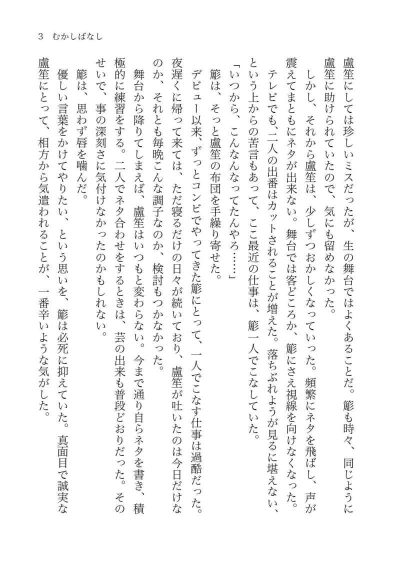 3 むかしばなし
盧笙にしては珍しいミスだったが、生の舞台ではよくあることだ。簓も時々、同じように
盧笙に助けられていたので、気にも留めなかった。
しかし、それから盧笙は、少しずつおかしくなっていった。頻繁にネタを飛ばし、声が
震えてまともにネタが出来ない。舞台では客どころか、簓にさえ視線を向けなくなった。
テレビでも、二人の出番はカットされることが増えた。落ちぶれようが見るに堪えない、
という上からの苦言もあって、ここ最近の仕事は、簓一人でこなしていた。
「いつから、こんなんなってたんやろ……」
簓は、そっと盧笙の布団を手繰り寄せた。
デビュー以来、ずっとコンビでやってきた簓にとって、一人でこなす仕事は過酷だった。
夜遅くに帰って来ては、ただ寝るだけの日々が続いており、盧笙が吐いたのは今日だけな
のか、それとも毎晩こんな調子なのか、検討もつかなかった。
舞台から降りてしまえば、盧笙はいつもと変わらない。今まで通り自らネタを書き、積
極的に練習をする。二人でネタ合わせをするときは、芸の出来も普段どおりだった。その
せいで、事の深刻さに気付けなかったのかもしれない。
簓は、思わず唇を噛んだ。
優しい言葉をかけてやりたい、という思いを、簓は必死に抑えていた。真面目で誠実な
盧笙にとって、相方から気遣われることが、一番辛いような気がした。